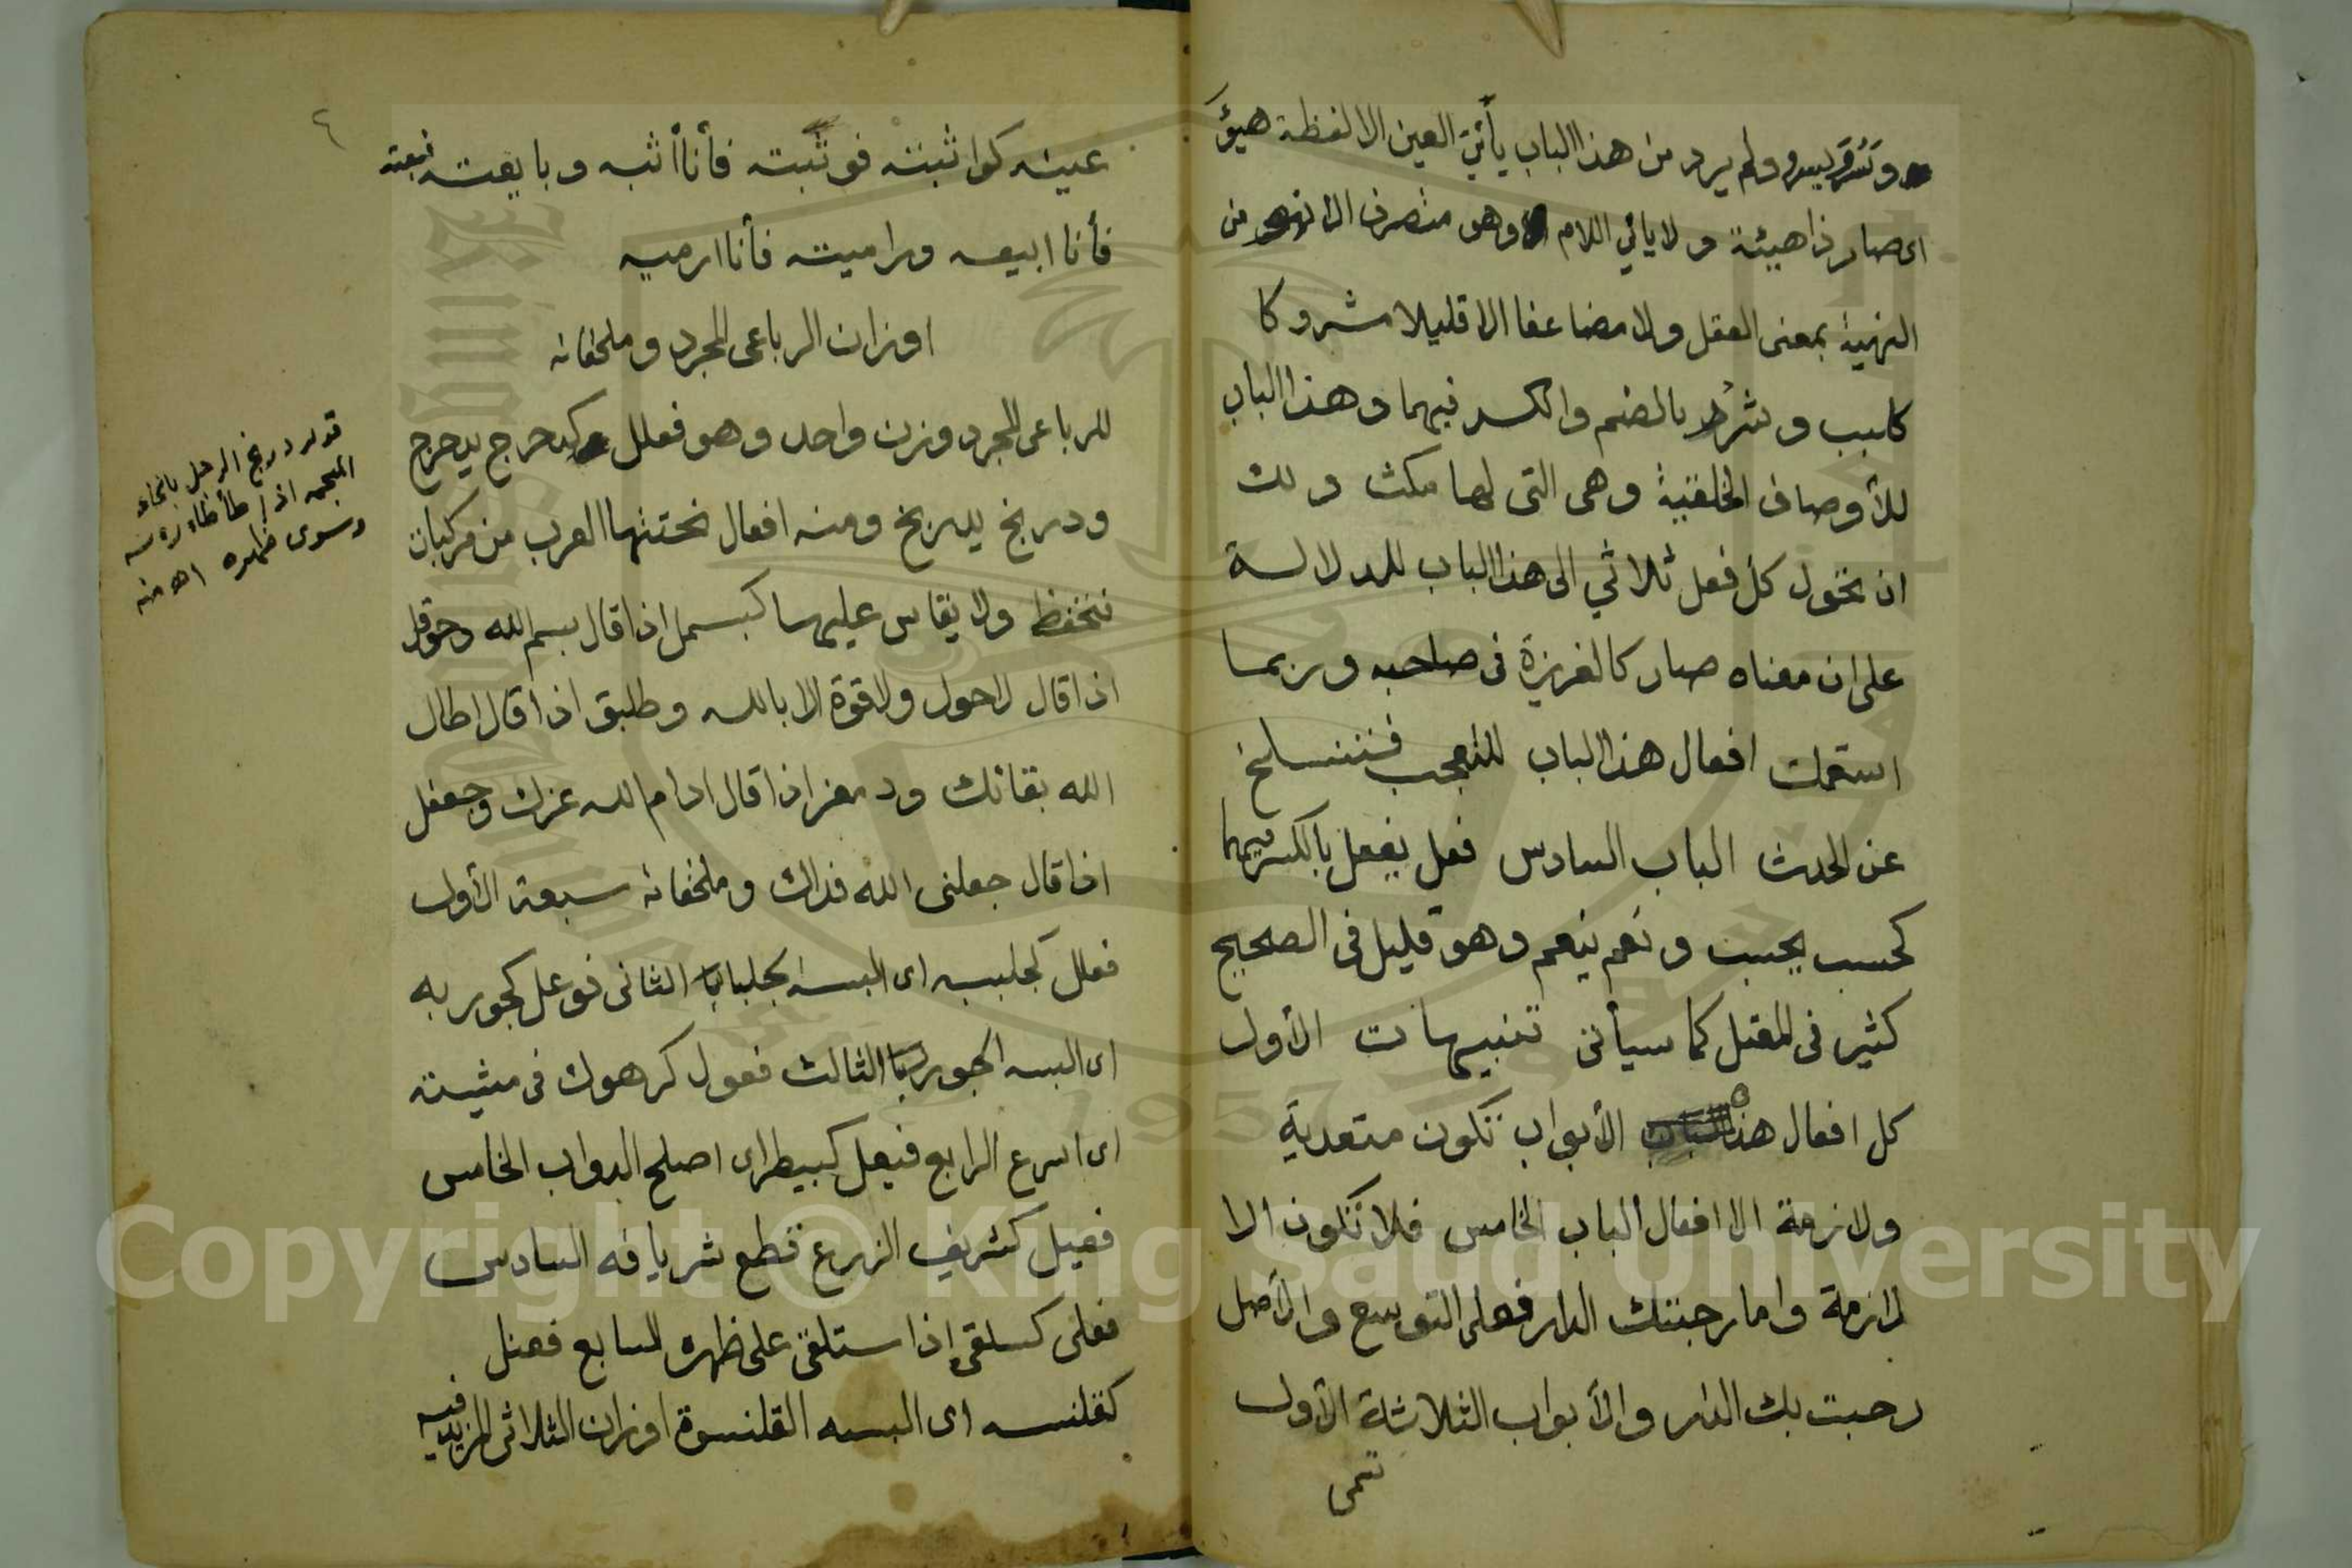 وسرو يسرو ولم يرد من هذا الباب يائي العين الا لفظة هيؤ
اى صار ذا هيئة ولا يائي اللام وهو متصرف الا نهو من
النهية بمعنى العقل ولا مضاعفا الا قليلا مشروكا
كلبب وشرر بالضم والكسر فيهما وهذا الباب
للأوصاف الخلقية وهى التى لها مكث ولك
ان تحول كل فعل ثلاثي الى هذا الباب للدلالة
على ان معناه صار كالغريزة فى صاحبه وربما
استعملت افعال هذا الباب للتعجب فتنسلخ
عن الحدث الباب السادس فعل يفعل بالكسر فيهما
كحسب يحسب ونعم ينعم وهو قليل فى الصحيح
كثير فى المعتل كما سيأتى تنبيهات الأول
كل افعال هذه الأبواب تكون متعدية
ولازمة الا افعال الباب الخامس فلا تكون الا
لازمة واما رحبتك الدار فعلى التوسع والأصل
رحبت بك الدار والأبواب الثلاثة الأول
تسمى
٤
عينه كواثبته فوثبته فأنا أثبه وبايعته فبعته
فأنا ابيعه وراميته فأنا ارميه
اوزان الرباعى المجرد وملحقاته
للرباعى المجرد وزن واحد وهو فعلل كدحرج يدحرج
ودربخ يدربخ ومنه افعال نحتتها العرب من مركبات
فتحفظ ولا يقاس عليها كبسمل اذا قال بسم الله وحوقل
اذا قال لاحول ولاقوة الا بالله وطلبق اذا قال اطال
الله بقائك ودمعز اذا قال ادام الله عزك وجعفل
اذا قال جعلنى الله فداك وملحقاته سبعة الأول
فعلل كجلببه اى البسه الجلباب الثانى فوعل كجوربه
اى البسه الجورب الثالث فعول كرهوك فى مشيته
اى اسرع الرابع فيعل كبيطر اى اصلح الدواب الخامس
فعيل كشريف الزرع قطع شريافه السادس
فعلى كسلقى اذا استلقى على ظهره السابع فعنل
كقلنسه اى البسه القلنسوة اوزان الثلاثى المزيد فيه
قوله دربخ الرجل بالخاء
المعجمه اذا طأطأ رأسه
وسوى ظهره اه منه
Copyright © King Saud University
1957